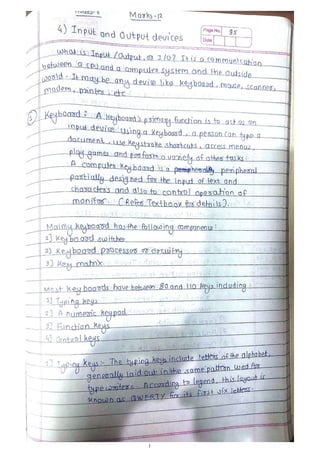 Marks-12
Page No. 35
Date
4) Input and Output devices
What is Input / Output, or I/O? It is a communication
between a CPU and a computer system and the outside
world. It may be any device like keyboard, mouse, scanner,
modem, printer, etc
Keyboard : A keyboard's primary function is to act as an
input device using a keyboard, a person can type a
document, use keystroke shortcuts, access menus,
play games and perform a variety of other tasks.
A computer keyboard is a peripheral
partially designed for the input of text and
characters and also to control operation of
monitor. (Refer Textbook for details).
Mainly keyboard has the following components:
1] Keyboard switches
2] Keyboard processor or circuitry
3] Key matrix
Most keyboards have between 80 and 110 keys including:
1] Typing keys
2] A numeric keypad
3] Function keys
4] Control keys
1] Typing keys :- The typing keys include letters of the alphabet,
generally laid out in the same pattern used for
typewriters. According to legend, this layout is
known as QWERTY for its first six letters.
1